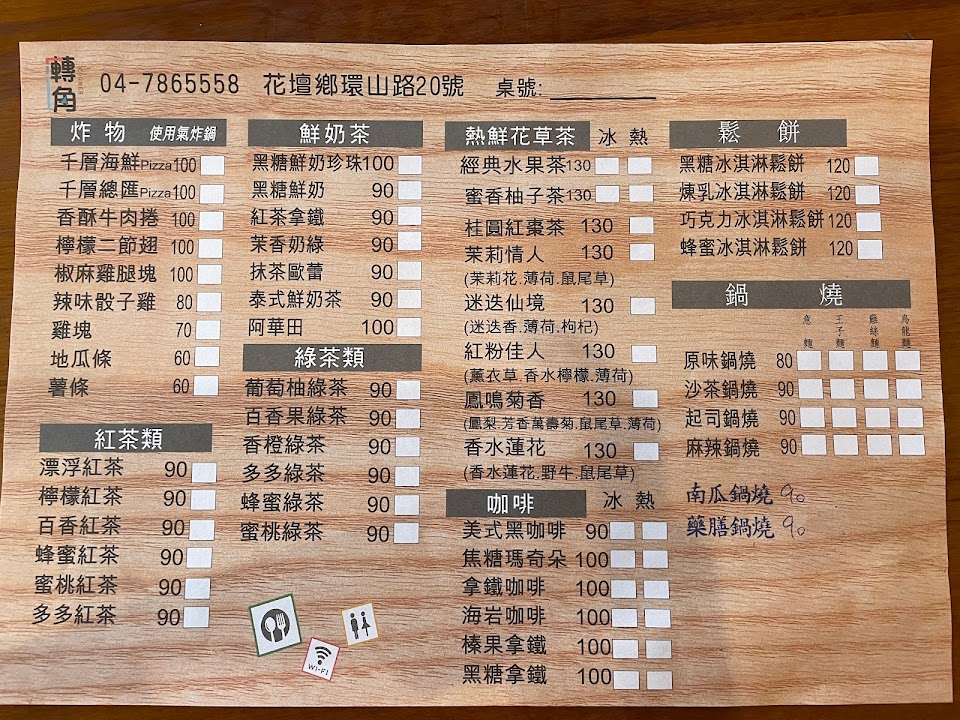 轉角 04-7865558 花壇鄉環山路20號 桌號:
炸物 使用氣炸鍋
千層海鮮Pizza 100
千層總匯Pizza 100
香酥牛肉捲 100
檸檬二節翅 100
椒麻雞腿塊 100
辣味骰子雞 80
雞塊 70
地瓜條 60
薯條 60
紅茶類
漂浮紅茶 90
檸檬紅茶 90
百香紅茶 90
蜂蜜紅茶 90
蜜桃紅茶 90
多多紅茶 90
鮮奶茶
黑糖鮮奶珍珠 100
黑糖鮮奶 90
紅茶拿鐵 90
茉香奶綠 90
抹茶歐蕾 90
泰式鮮奶茶 90
阿華田 100
綠茶類
葡萄柚綠茶 90
百香果綠茶 90
香橙綠茶 90
多多綠茶 90
蜂蜜綠茶 90
蜜桃綠茶 90
WI-FI
熱鮮花草茶 冰 熱
經典水果茶 130
蜜香柚子茶 130
桂圓紅棗茶 130
茉莉情人 130
(茉莉花.薄荷.鼠尾草)
迷迭仙境 130
(迷迭香.薄荷.枸杞)
紅粉佳人 130
(薰衣草.香水檸檬.薄荷)
鳳鳴菊香 130
(鳳梨.芳香萬壽菊.鼠尾草.薄荷)
香水蓮花 130
(香水蓮花.野牛.鼠尾草)
咖啡 冰 熱
美式黑咖啡 90
焦糖瑪奇朵 100
拿鐵咖啡 100
海岩咖啡 100
榛果拿鐵 100
黑糖拿鐵 100
鬆餅
黑糖冰淇淋鬆餅 120
煉乳冰淇淋鬆餅 120
巧克力冰淇淋鬆餅 120
蜂蜜冰淇淋鬆餅 120
鍋燒
意麵 王子麵 雞絲麵 烏龍麵
原味鍋燒 80
沙茶鍋燒 90
起司鍋燒 90
麻辣鍋燒 90
南瓜鍋燒 90
藥膳鍋燒 90